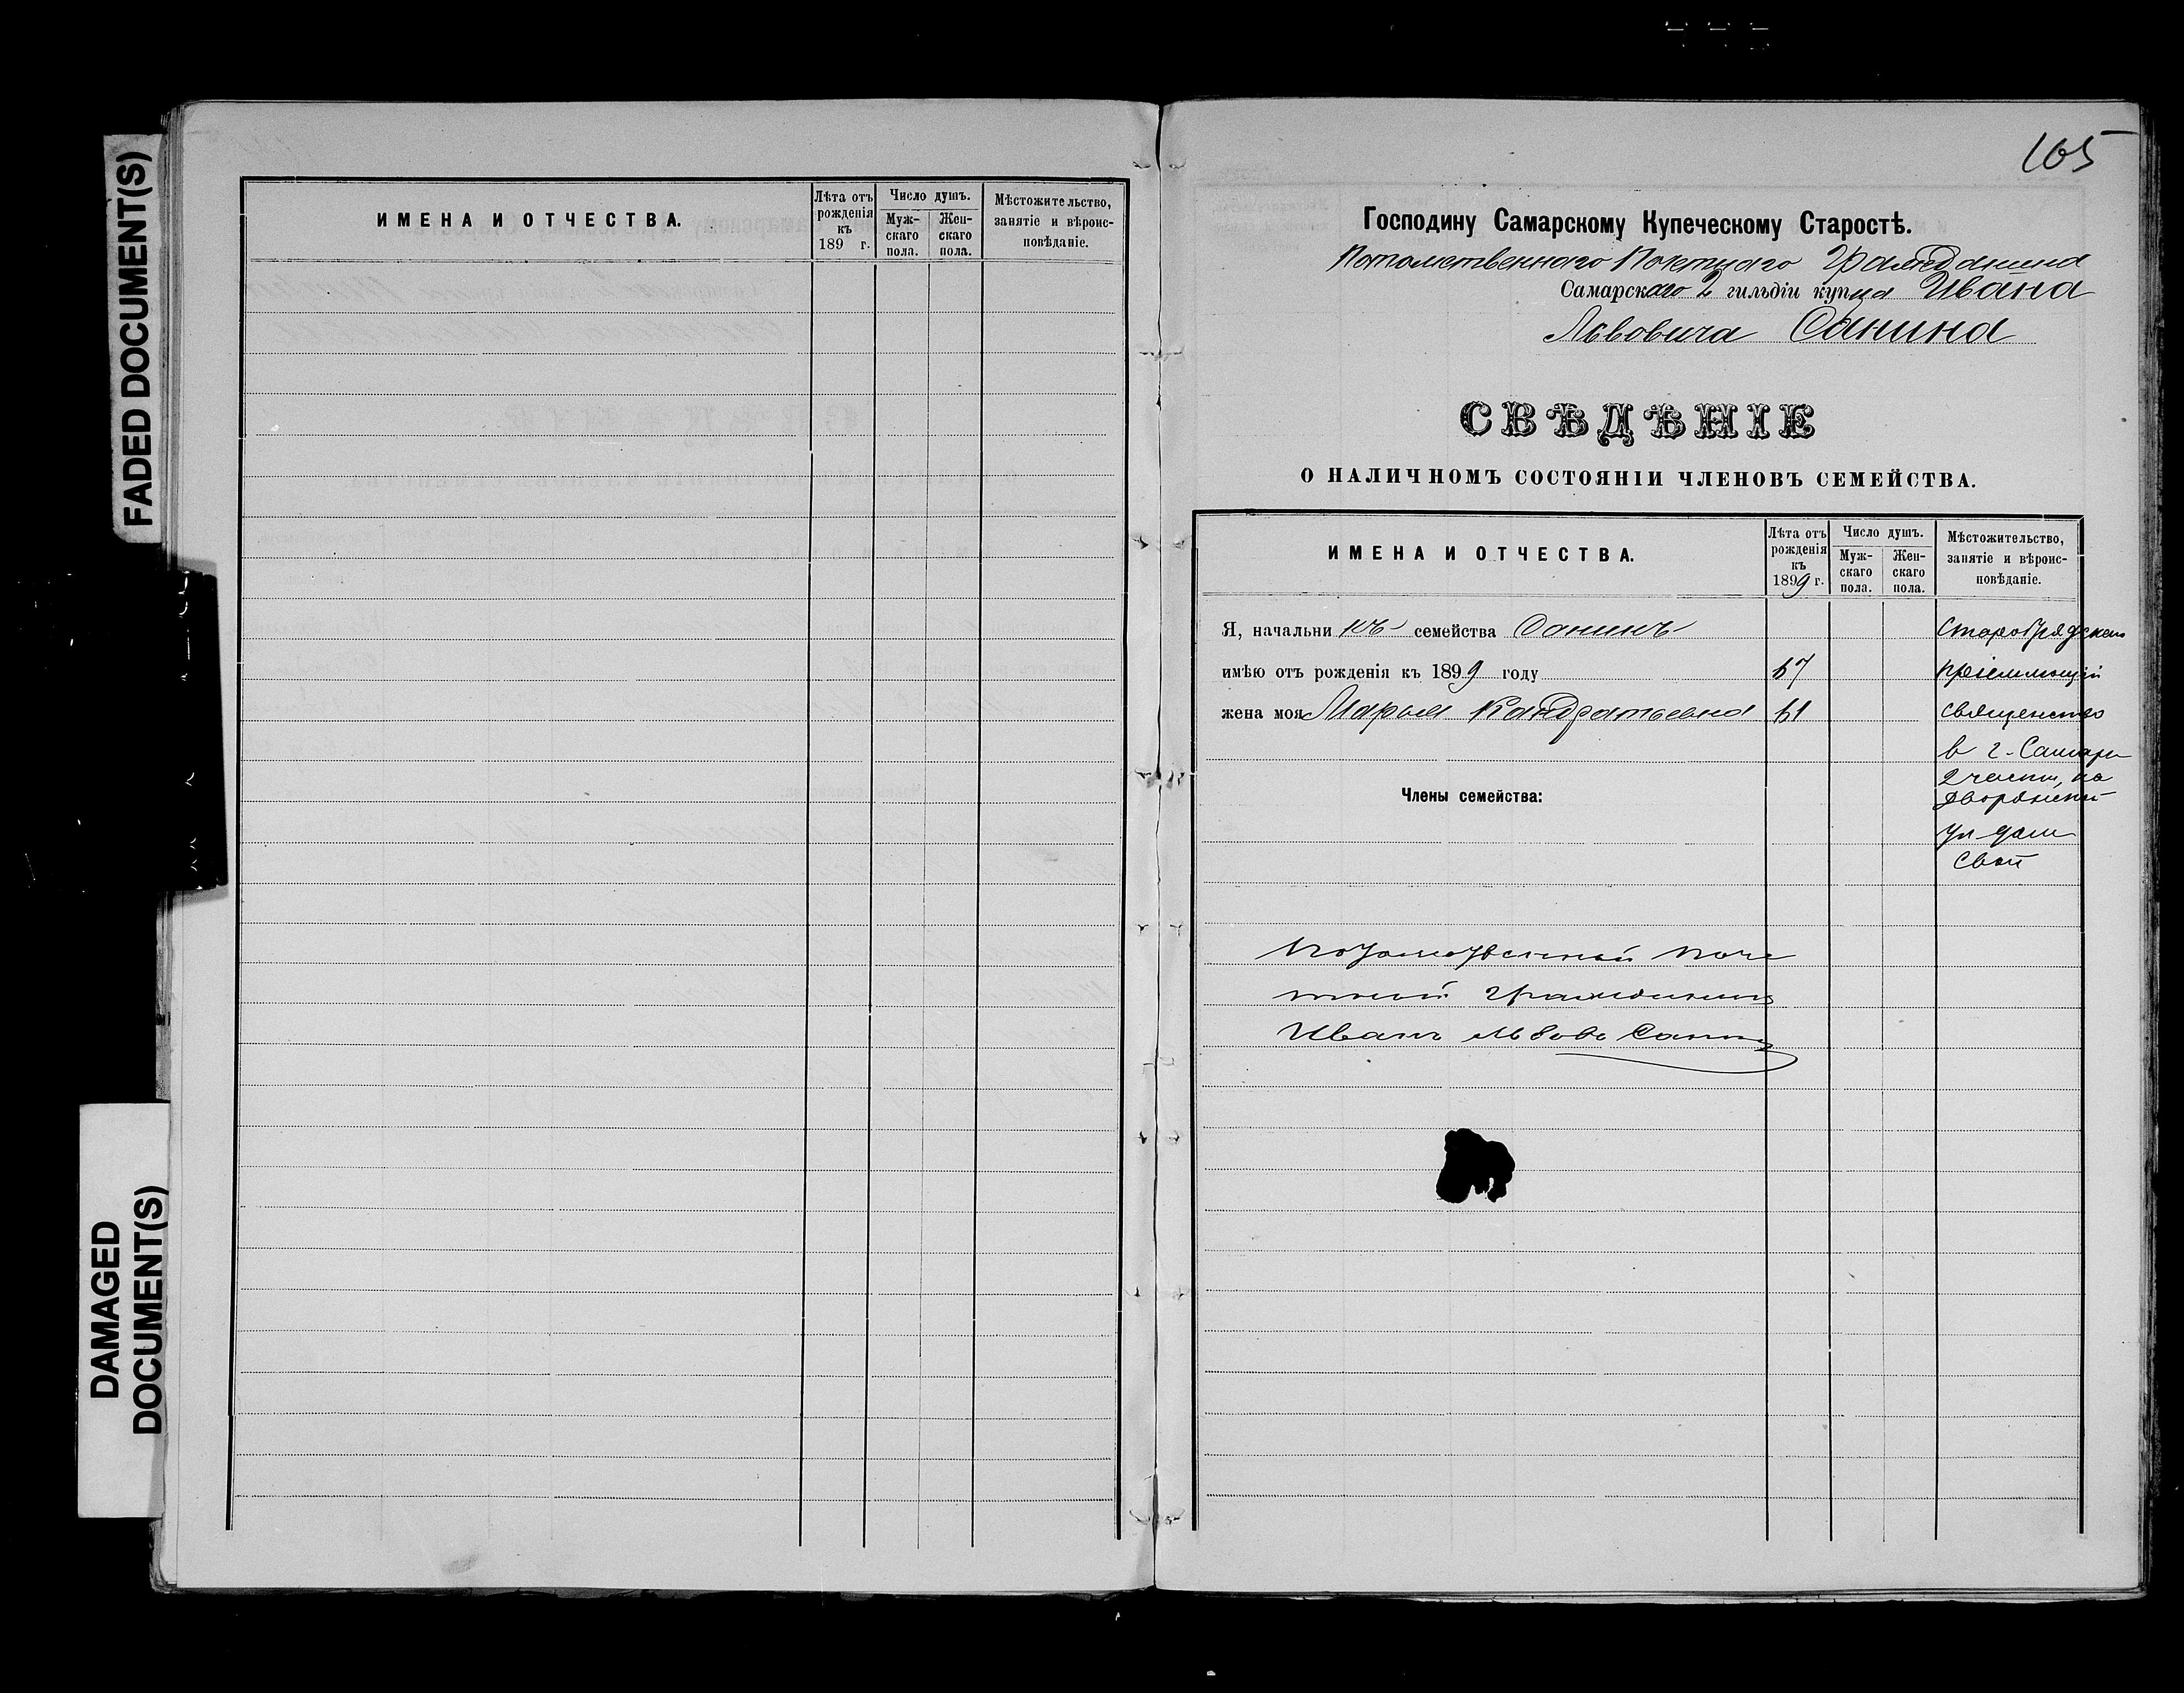 FADED DOCUMENT(S)
DAMAGED
DOCUMENT(S)
ИМЕНА И ОТЧЕСТВА.
Лѣта отъ
рожденія
къ
189 г.
Число душъ.
Муж-
скаго
пола.
Жен-
скаго
пола.
Мѣстожительство,
занятіе и вѣроис-
повѣданіе.
105
Господину Самарскому Купеческому Старостѣ.
Потомственнаго Почетнаго Гражданина
Самарскаго 2 гильдіи купца Ивана
Львовича Санина
СВѢДѢНІЕ
О НАЛИЧНОМЪ СОСТОЯНІИ ЧЛЕНОВЪ СЕМЕЙСТВА.
ИМЕНА И ОТЧЕСТВА.
Лѣта отъ
рожденія
къ
1899 г.
Число душъ.
Муж-
скаго
пола.
Жен-
скаго
пола.
Мѣстожительство,
занятіе и вѣроис-
повѣданіе.
Я, начальникъ семейства Санинъ
имѣю отъ рожденія къ 1899 году 67
жена моя Марья Кандратьевна 61
священство
в г. Самаре
2 части, на
Дворянской
ул дом
свой
Члены семейства:
Потомственный поче
тный гражданинъ
Иванъ Львовъ Санинъ